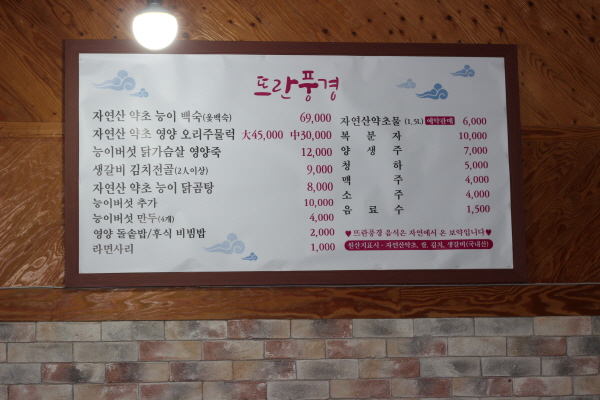 뜨란풍경
자연산 약초 능이 백숙(옻백숙) 69,000
자연산 약초 영양 오리주물럭 大45,000 中30,000
능이버섯 닭가슴살 영양죽 12,000
생갈비 김치전골(2人이상) 9,000
자연산 약초 능이 닭곰탕 8,000
능이버섯 추가 10,000
능이버섯 만두(4개) 4,000
영양 돌솥밥/후식 비빔밥 2,000
라면사리 1,000
자연산약초물(1.5L) 예약판매 6,000
복분자 10,000
양생주 7,000
청하 5,000
맥주 4,000
소주 4,000
음료수 1,500
♥뜨란풍경 음식은 자연에서 온 보약입니다♥
원산지표시 - 자연산약초, 쌀, 김치, 생갈비(국내산)